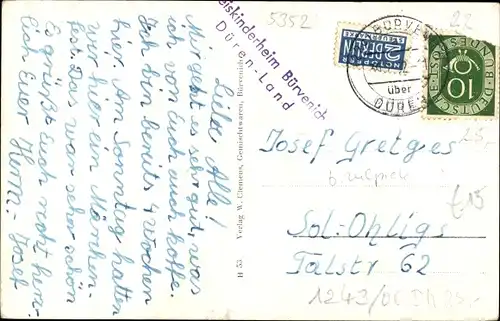 5352
22
eiskinderheim Bürvenich
Düren-Land
BÜRVE
über
DÜRE
NOTOPFER
2 BERLIN
STEUERMARKE
DEUTSCHE BUNDESPOST
10
Liebe Alle!
Mir geht es sehr gut, was
ich von Euch auch hoffe.
Ich bin bereits 4 Wochen
hier. Am Sonntag hatten
wir hier ein Märchen-
fest. Das war sehr schön
Es grüßt Euch recht herz-
lich Euer Herm.-Josef
H 53 Verlag W. Clemens, Gemischtwaren, Bürvenich
Josef Gretges
b. Zülpich
Sol-Ohligs
Talstr 62
25,-
£15